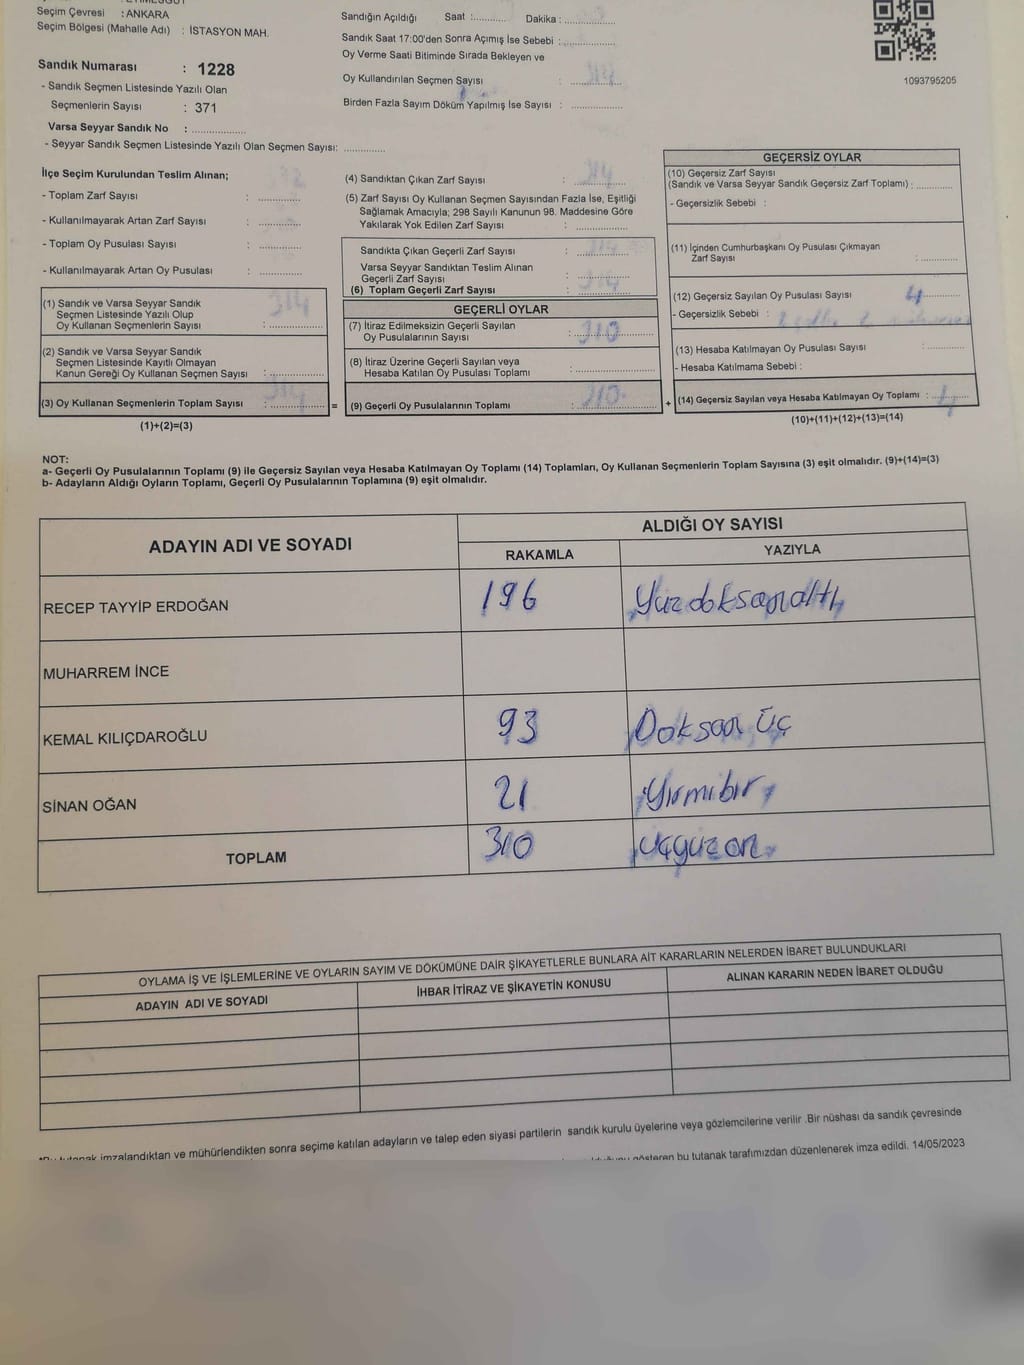 Seçim Çevresi : ANKARA
Seçim Bölgesi (Mahalle Adı) : İSTASYON MAH.
Sandık Numarası : 1228
- Sandık Seçmen Listesinde Yazılı Olan
Seçmenlerin Sayısı : 371
Varsa Seyyar Sandık No : ..................
- Seyyar Sandık Seçmen Listesinde Yazılı Olan Seçmen Sayısı: .............
Sandığın Açıldığı Saat :........... Dakika : ................
Sandık Saat 17:00'den Sonra Açımış İse Sebebi : ................
Oy Verme Saati Bitiminde Sırada Bekleyen ve
Oy Kullandırılan Seçmen Sayısı : ................ 314
Birden Fazla Sayım Döküm Yapılmış İse Sayısı : ................
1093795205
İlçe Seçim Kurulundan Teslim Alınan;
- Toplam Zarf Sayısı : .............
- Kullanılmayarak Artan Zarf Sayısı : .............
- Toplam Oy Pusulası Sayısı : .............
- Kullanılmayarak Artan Oy Pusulası : .............
(1) Sandık ve Varsa Seyyar Sandık
Seçmen Listesinde Yazılı Olup
Oy Kullanan Seçmenlerin Sayısı : ................ 314
(2) Sandık ve Varsa Seyyar Sandık
Seçmen Listesinde Kayıtlı Olmayan
Kanun Gereği Oy Kullanan Seçmen Sayısı : ................
(3) Oy Kullanan Seçmenlerin Toplam Sayısı : ................ 314
(1)+(2)=(3)
(4) Sandıktan Çıkan Zarf Sayısı : ................ 314
(5) Zarf Sayısı Oy Kullanan Seçmen Sayısından Fazla İse, Eşitliği
Sağlamak Amacıyla; 298 Sayılı Kanunun 98. Maddesine Göre
Yakılarak Yok Edilen Zarf Sayısı : ................
Sandıkta Çıkan Geçerli Zarf Sayısı : ................ 314
Varsa Seyyar Sandıktan Teslim Alınan
Geçerli Zarf Sayısı : ................
(6) Toplam Geçerli Zarf Sayısı : ................ 314
GEÇERLİ OYLAR
(7) İtiraz Edilmeksizin Geçerli Sayılan
Oy Pusulalarının Sayısı : ................ 310
(8) İtiraz Üzerine Geçerli Sayılan veya
Hesaba Katılan Oy Pusulası Toplamı : ................
= (9) Geçerli Oy Pusulalarının Toplamı : ................ 310
GEÇERSİZ OYLAR
(10) Geçersiz Zarf Sayısı
(Sandık ve Varsa Seyyar Sandık Geçersiz Zarf Toplamı) : ............
- Geçersizlik Sebebi :
(11) İçinden Cumhurbaşkanı Oy Pusulası Çıkmayan
Zarf Sayısı : ............
(12) Geçersiz Sayılan Oy Pusulası Sayısı : 4............
- Geçersizlik Sebebi :
(13) Hesaba Katılmayan Oy Pusulası Sayısı : ............
- Hesaba Katılmama Sebebi :
+ (14) Geçersiz Sayılan veya Hesaba Katılmayan Oy Toplamı : ............ 4
(10)+(11)+(12)+(13)=(14)
NOT:
a- Geçerli Oy Pusulalarının Toplamı (9) ile Geçersiz Sayılan veya Hesaba Katılmayan Oy Toplamı (14) Toplamları, Oy Kullanan Seçmenlerin Toplam Sayısına (3) eşit olmalıdır. (9)+(14)=(3)
b- Adayların Aldığı Oyların Toplamı, Geçerli Oy Pusulalarının Toplamına (9) eşit olmalıdır.
ADAYIN ADI VE SOYADI ALDIĞI OY SAYISI
RAKAMLA YAZIYLA
RECEP TAYYİP ERDOĞAN 196 Yüzdoksanaltı
MUHARREM İNCE
KEMAL KILIÇDAROĞLU 93 Doksan üç
SİNAN OĞAN 21 Yirmibir
TOPLAM 310 üçyüzon
OYLAMA İŞ VE İŞLEMLERİNE VE OYLARIN SAYIM VE DÖKÜMÜNE DAİR ŞİKAYETLERLE BUNLARA AİT KARARLARIN NELERDEN İBARET BULUNDUKLARI
ADAYIN ADI VE SOYADI İHBAR İTİRAZ VE ŞİKAYETİN KONUSU ALINAN KARARIN NEDEN İBARET OLDUĞU
imzalandıktan ve mühürlendikten sonra seçime katılan adayların ve talep eden siyasi partilerin sandık kurulu üyelerine veya gözlemcilerine verilir .Bir nüshası da sandık çevresinde
gösteren bu tutanak tarafımızdan düzenlenerek imza edildi. 14/05/2023